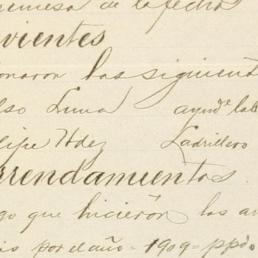 remesa de la fecha
vientes
onaron las siguient
lso Luna ayudte lab
lipe Hdez Ladrillero
rrendamientos.
go que hicieron los ar
is por el año - 1909 - ppdo